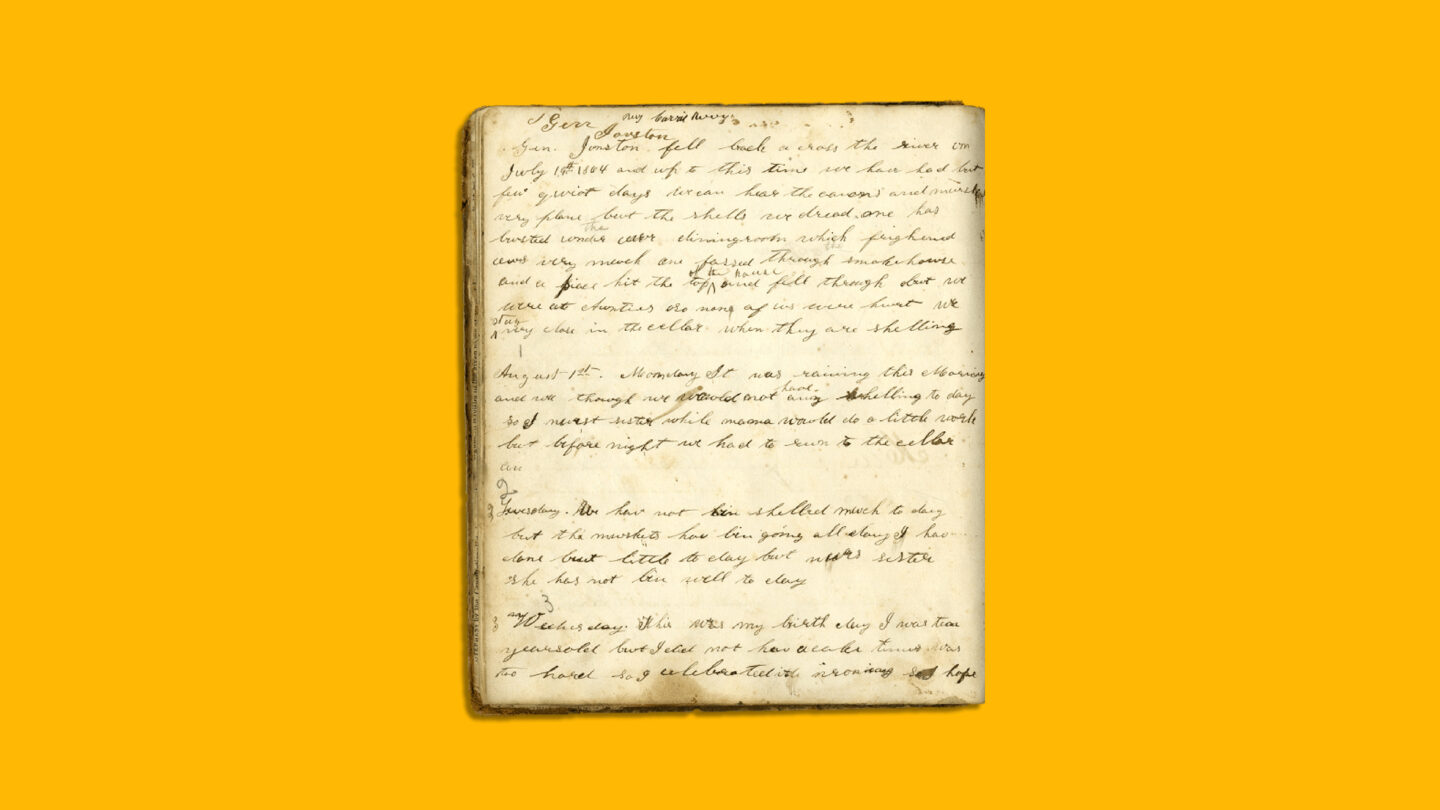 Gen
my Carrie Berry
Jonston
Gen. Jonston fell back a cross the river on
July 19th 1864 and up to this time we have had but
few qwiet days we can hear the canons and muskets
very plane but the shells we dread. one has
busted under the dining room which frighened
us very much one passed through the smokehouse
and a piece hit the top of the house and fell through but we
were at Aunties so none of us were hurt we
stay very close in the cellar when they are shelling
1
August 1st. Monday It was raining this Morning
and we though we would not have any shelling to day
so I nurst sister while mama would do a little work
but before night we had to run to the cellar
2
Tuesday. We hav not bin shelled much to day
but the muskets hav bin going all day I hav
done but little to day but nurs sister
she has not bin well to day
3
Wednesday. This was my birth day I was ten
years old but I did not hav a cake times was
too hard so I celebrated with ironing I hope